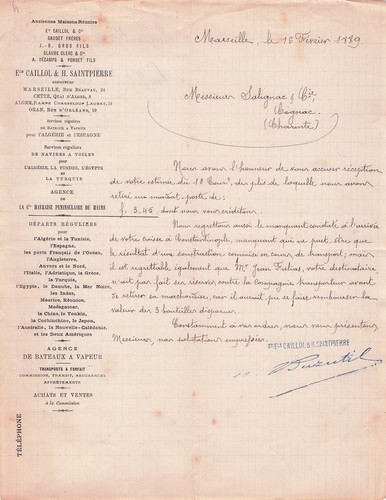 Anciennes Maisons Réunies
Ete CAILLOL & Cie
GAUDET FRÈRES
J.-B. GROS FILS
CLAUDE CLERC & Cie
A. RÉCAMPS & PONSET FILS
Ete CAILLOL & H. SAINTPIERRE
SUCCESSEURS
MARSEILLE, Rue Beauvau, 21
CETTE, Quai d'Alger, 3
ALGER, Rampe Chasseloup Laubat, 11
ORAN, Rue d'Orléans, 19
Services réguliers
DE BATEAUX A VAPEUR
pour l'ALGÉRIE et l'ESPAGNE
Services réguliers
DE NAVIRES A VOILES
POUR
L'ALGÉRIE, LA TUNISIE, L'ÉGYPTE
ET
LA TURQUIE
AGENCE
DE
LA Cie HAVRAISE PÉNINSULAIRE DU HAVRE
DÉPARTS RÉGULIERS
pour
l'Algérie et la Tunisie,
l'Espagne,
les ports Français de l'Océan,
l'Angleterre,
Anvers, Hambourg,
l'Europe et le Nord,
l'Italie, l'Adriatique, la Grèce,
la Turquie,
l'Egypte, le Danube, la Mer Noire,
les Indes,
Maurice, Réunion,
Madagascar,
la Chine, le Tonkin,
la Cochinchine, le Japon,
l'Australie, la Nouvelle-Calédonie,
et les Deux Amériques
AGENCE
DE BATEAUX A VAPEUR
TRANSPORTS A FORFAIT
COMMISSION, TRANSIT, ASSURANCES
AFFRÈTEMENTS
ACHATS ET VENTES
à la Commission
TÉLÉPHONE
Marseille, le 16 Février 1889
Messieurs Salignac & Cie,
Cognac
(Charente)
Nous avons l'honneur de vous accuser réception
de votre estimée du 10 Cour^t, des plis de laquelle nous avons
retiré un mandat poste de :
f. 3,45, dont nous vous créditons.
Nous regrettons aussi le manquant constaté à l'arrivée
de votre caisse à Constantinople, manquant qui ne peut être que
le résultat d'une soustraction commise en cours de transport ; mais
il est regrettable également que Mr Jean votre destinataire
n'ait pas fait ses réserves contre la Compagnie transporteur avant
de retirer sa marchandise, car il aurait pu se faire rembourser la
valeur des 3 bouteilles disparues.
Constamment à vos ordres, nous vous présentons,
Messieurs, nos salutations empressées.
Ete CAILLOL & H. SAINTPIERRE